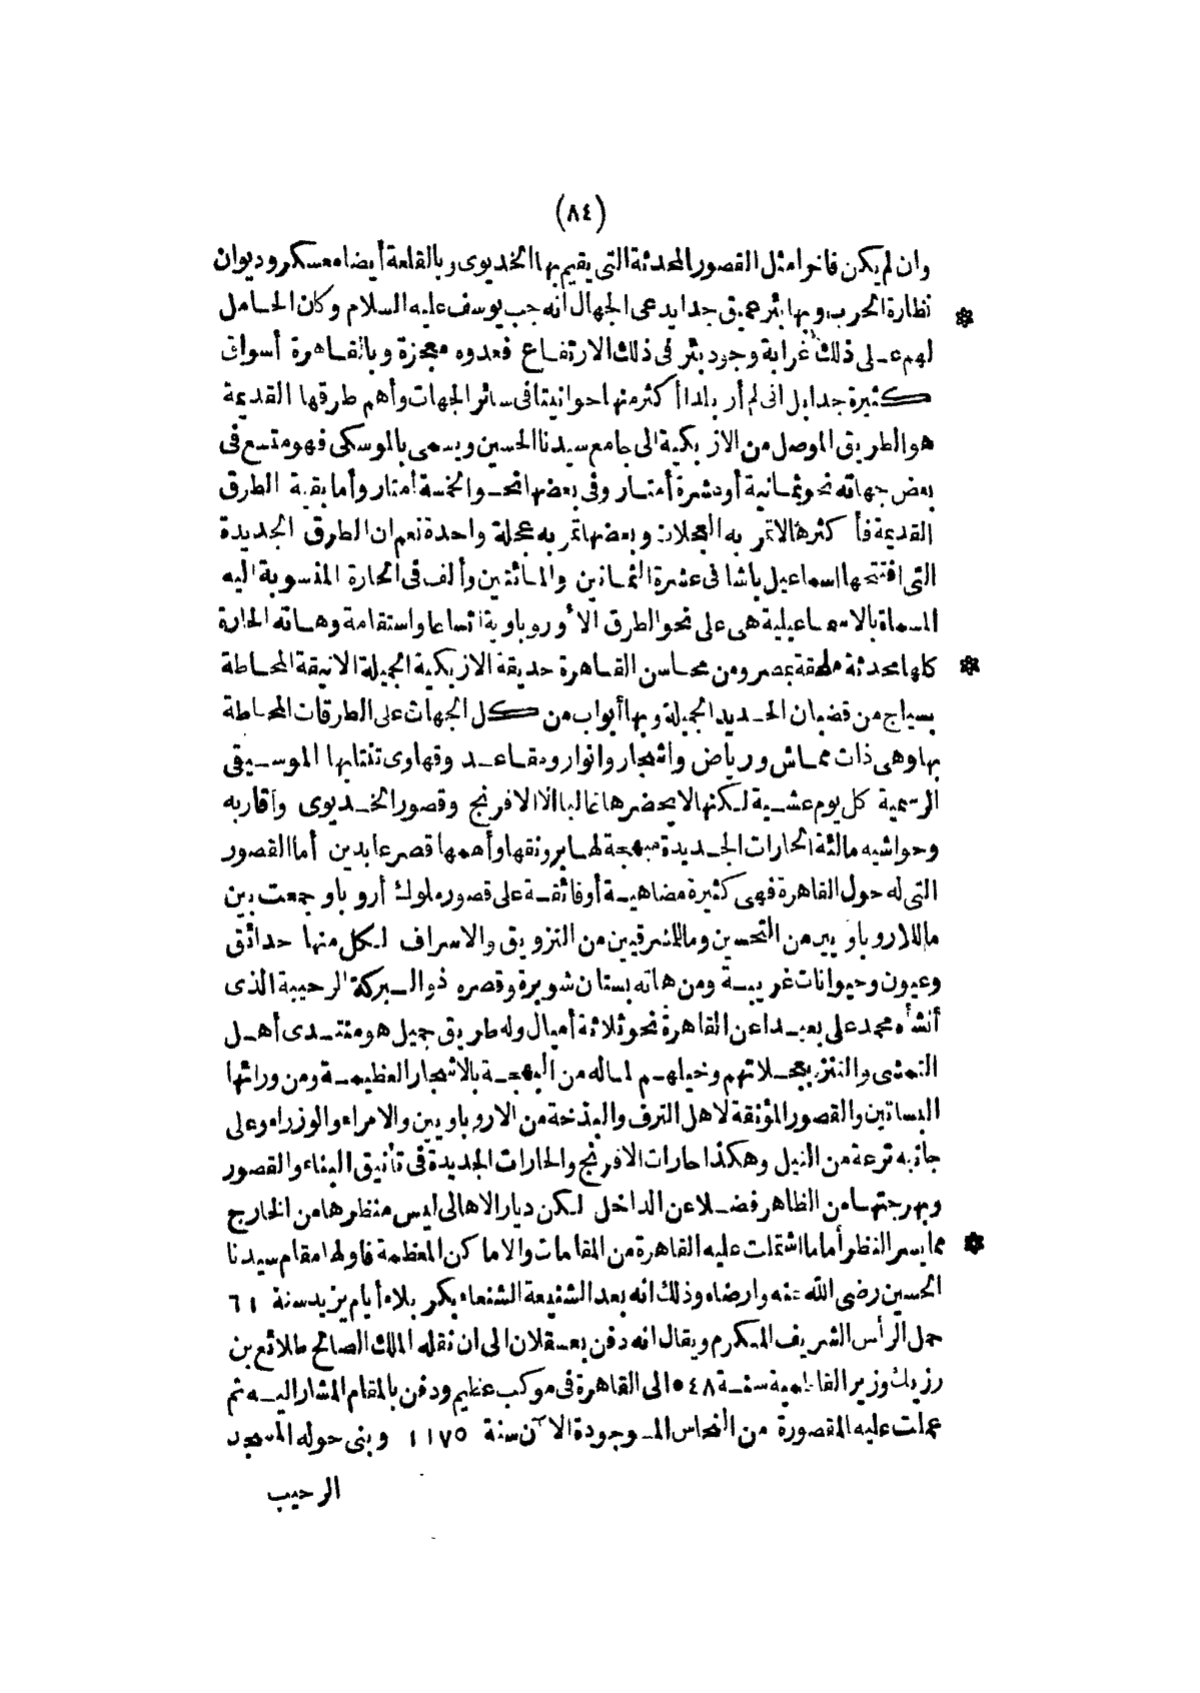 (٨٤)
وان لم يكن فاخرا مثل القصور المحدثة التى يقيم بها الخديوى وبالقلعة أيضا معسكر وديوان
نظارة الحرب وبها بئر عميق جدا يدعى الجهال أنه جب يوسف عليه السلام وكان الحامل *
لهم على ذلك غرابة وجود بئر فى ذلك الارتفاع فعدوه معجزة وبالقاهرة أسواق
كثيرة جدا بل انى لم أر بلدا أكثر منها حوانيتا فى سائر الجهات وأهم طرقها القديمة
هو الطريق الموصل من الازبكية الى جامع سيدنا الحسين ويسمى بالموسكى فهو متسع فى
بعض جهاته نحو ثمانية أو عشرة أمتار وفى بعضها نحو الخمسة أمتار وأما بقية الطرق
القديمة فأكثرها لا تمر به العجلات وبعضها تمر به عجلة واحدة نعم ان الطرق الجديدة
التى افتتحها اسماعيل باشا فى عشرة الثمانين والمائتين وألف فى الحارة المنسوبة اليه
المسماة بالاسماعيلية هى على نحو الطرق الأوروباوية اتساعا واستقامة وهاته الحارة
كلها محدثة ملحقة بمصر ومن محاسن القاهرة حديقة الازبكية الجميلة الانيقة المحاطة *
بسياج من قضبان الحديد الجميلة وبها أبواب من كل الجهات على الطرقات المحاطة
بها وهى ذات مماش ورياض واشجار وانوار ومقاعد وقهاوى تنتابها الموسيقى
الرسمية كل يوم عشية لكنها لا يحضرها غالبا الا الافرنج وقصور الخديوى وأقاربه
وحواشيه مالئة الحارات الجديدة مبهجة لها برونقها وأهمها قصر عابدين أما القصور
التى له حول القاهرة فهى كثيرة مضاهية أو فائقة على قصور ملوك أروبا وجمعت بين
ما للاروباويين من التحسين وما للشرقيين من التزويق والاسراف لكل منها حدائق
وعيون وحيوانات غريبة ومن هاته بستان شوبرة وقصره ذو البركة الرحيبة الذى
أنشأه محمد على بعيدا عن القاهرة نحو ثلاثة أميال وله طريق جميل هو منتدى أهل
التمشى والتنزه بعجلاتهم وخيلهم لما له من البهجة بالاشجار العظيمة ومن ورائها
البساتين والقصور المؤنقة لاهل الترف والبذخة من الاروباويين والامراء والوزراء وعلى
جانبه ترعة من النيل وهكذا حارات الافرنج والحارات الجديدة فى تأنيق البناء والقصور
وبهرجتها من الظاهر فضلا عن الداخل لكن ديار الاهالى ليس منظرها من الخارج
مما يسر النظر أما ما اشتملت عليه القاهرة من المقامات والاماكن المعظمة فاولها مقام سيدنا *
الحسين رضى الله عنه وارضاه وذلك انه بعد الشنيعة الشنعاء بكربلاء أيام يزيد سنة ٦١
حمل الرأس الشريف المكرم ويقال انه دفن بعسقلان الى ان نقله الملك الصالح طلائع بن
رزيك وزير الفاطمية سنة ٥٤٨ الى القاهرة فى موكب عظيم ودفن بالمقام المشار اليه ثم
عملت عليه المقصورة من النحاس الموجودة الآن سنة ١١٧٥ وبنى حوله المسجد
الرحيب